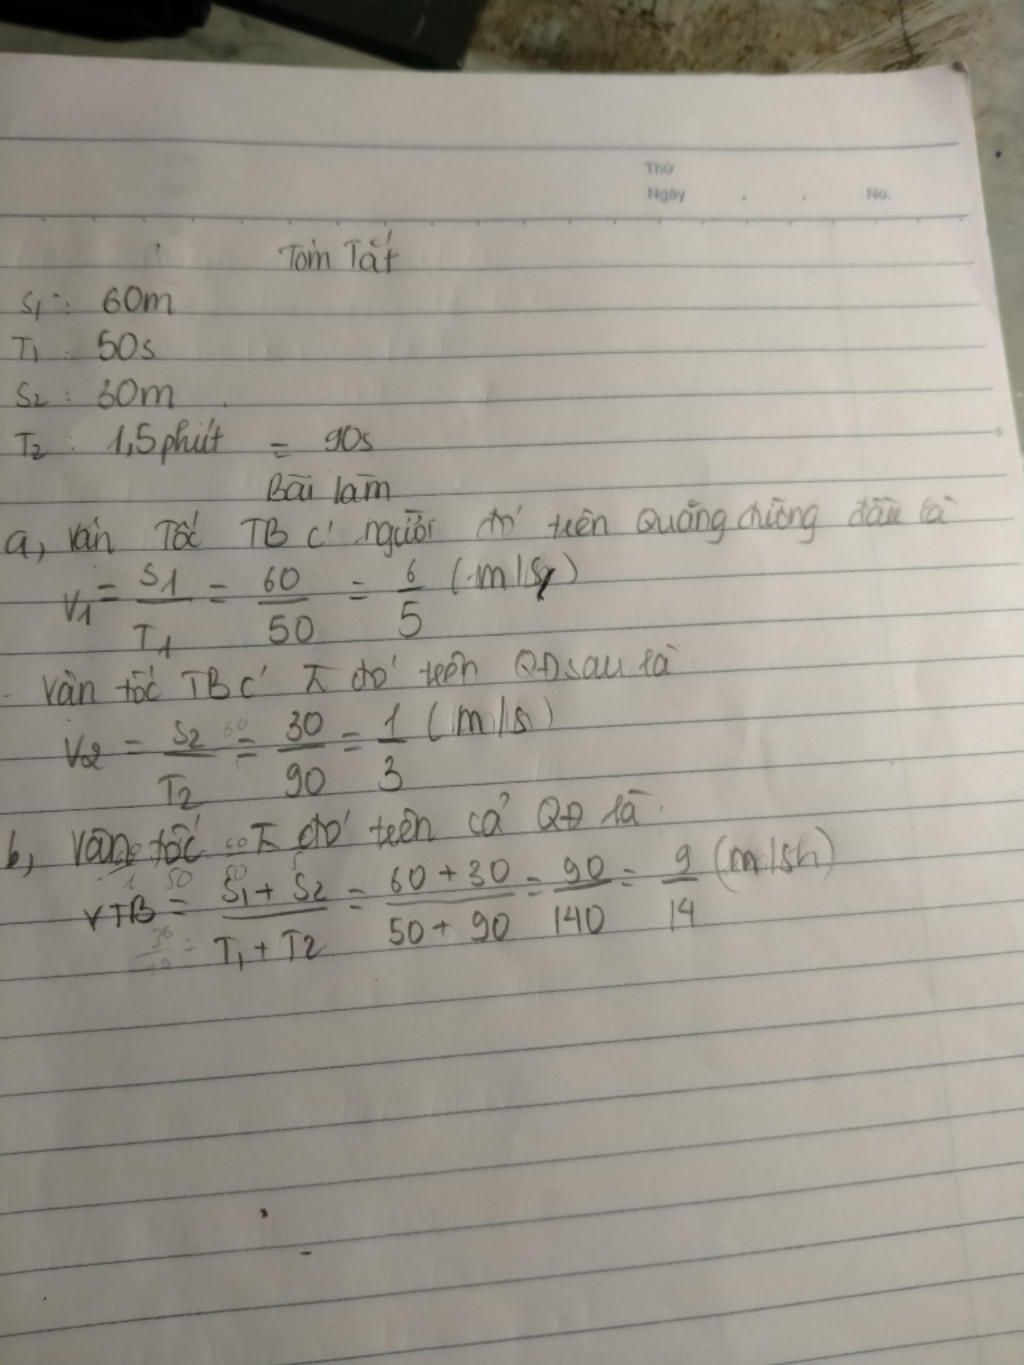 Thứ
Ngày . . No.
Tóm Tắt
S1 : 60m
T1 : 50s
S2 : 30m
T2 : 1,5 phút = 90s
Bài làm
a, Vận Tốc TB c' người đó trên Quãng đường đầu là
V1 = S1/T1 = 60/50 = 6/5 (m/s)
- Vận tốc TB c' đó trên QĐ sau là
V2 = S2/T2 = 30/90 = 1/3 (m/s)
b, Vận tốc đó trên cả QĐ là
VTB = S1 + S2/T1 + T2 = 60 + 30/50 + 90 = 90/140 = 9/14